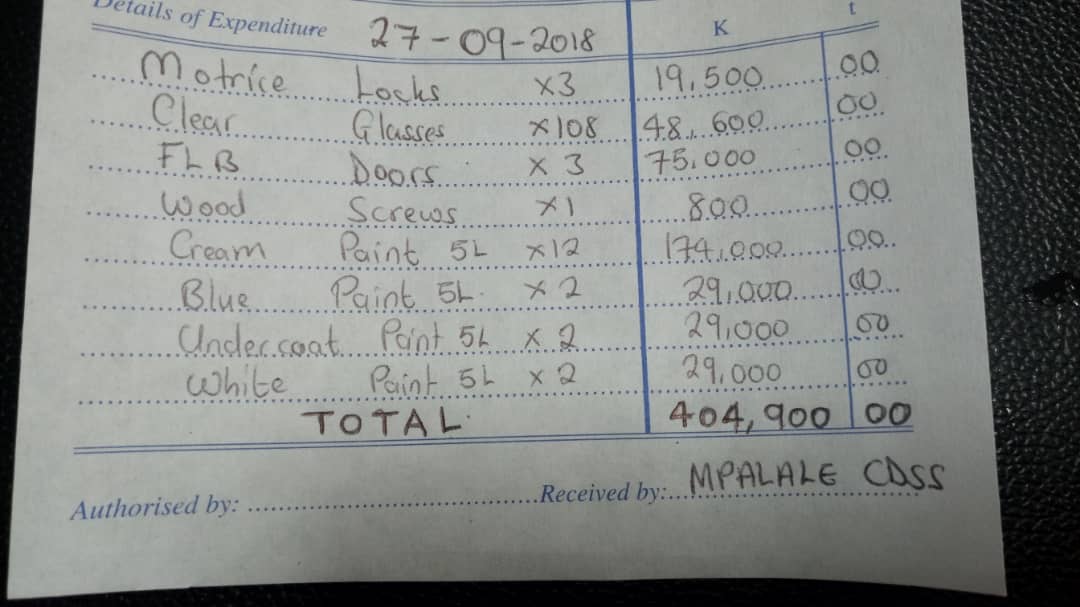 Details of Expenditure 27-09-2018 K t
Motrice Locks x3 19,500 00
Clear Glasses x108 48,600 00
FLB Doors x 3 75,000 00
Wood Screws x1 800 00
Cream Paint 5L x12 174,000 00
Blue Paint 5L x 2 29,000 00
Undercoat Paint 5L x 2 29,000 00
White Paint 5L x 2 29,000 00
TOTAL 404,900 00
Authorised by: Received by: MPALALE CDSS